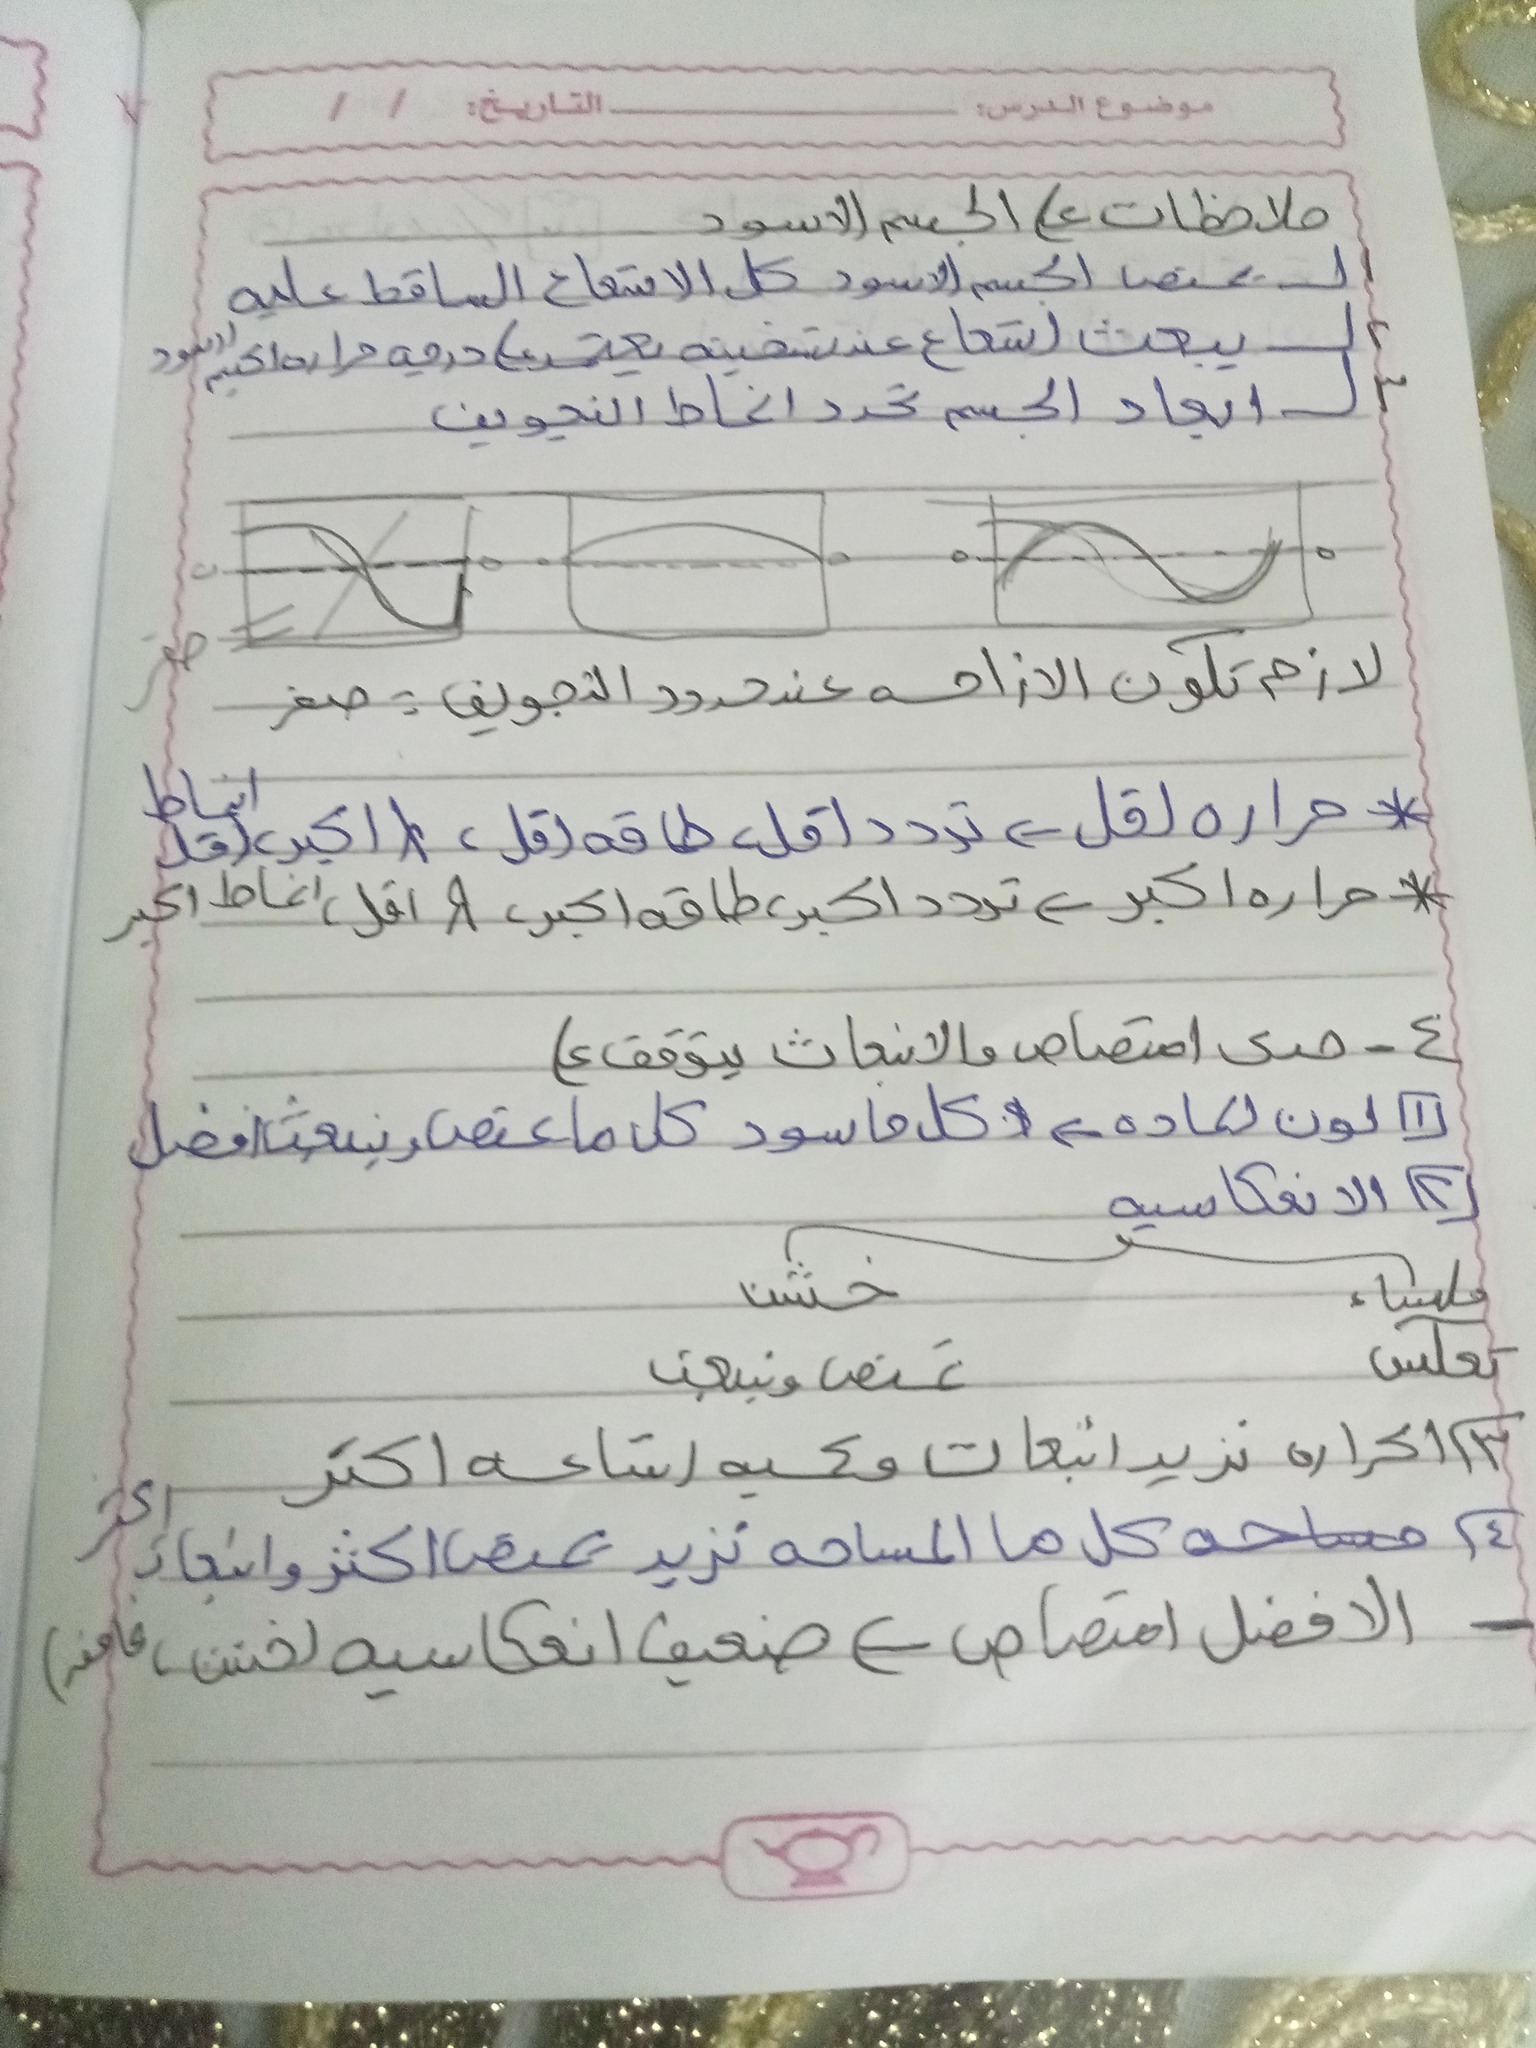 موضوع الدرس: التاريخ: / /
ملاحظات ع الجسم الاسود
١ـ يمتص الجسم الاسود كل الاشعاع الساقط عليه
٢ـ يبعث اشعاع عند تسخينه يعتمد ع درجه حراره الجسم الاسود
٣ـ ابعاد الجسم تحدد انماط التجويف
صفر
لازم تكون الازاحه عند حدود التجويف = صفر
* حراره اقل ← تردد اقل، طاقه اقل، λ اكبر، انماط اقل
* حراره اكبر ← تردد اكبر، طاقه اكبر، λ اقل، انماط اكبر
٤ - مدى امتصاص والانبعاث يتوقف ع
١ لون الماده ← كل ما اسود كل ما يمتص وينبعث افضل
٢ الانعكاسيه
ملساء خشن
تعكس تمتص وتبعث
٣ الحراره تزيد انبعاث وكميه اشاعه اكتر
٤ كل ما المساحه تزيد يمتص اكثر وانبعاث اكتر
- الافضل امتصاص ← ضعيف انعكاسيه (خشن،